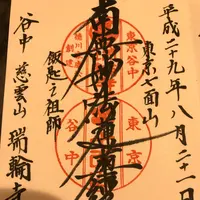 平成二十九年八月二十一
東京七面山
東京谷中
南無妙法蓮華経
東京
谷中
飯匙之祖師
谷中 慈雲山 瑞輪寺